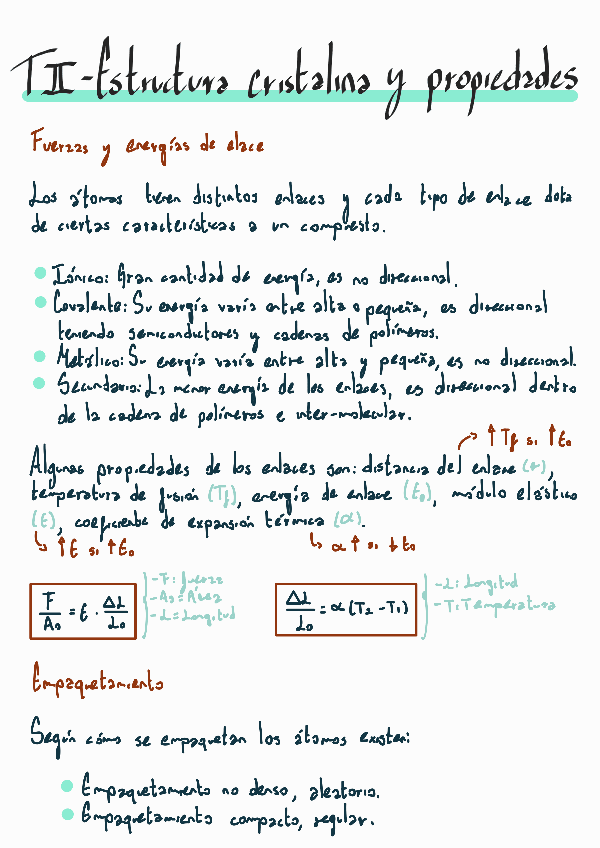 TII-Estructura cristalina y propiedades
Fuerzas y energías de elace
Los átomos tienen distintos enlaces y cada tipo de enlace dota
de ciertas características a un compuesto.
Iónico: Gran cantidad de energía, es no direccional.
Covalente: Su energía varía entre alta o pequeña, es direccional
teniendo semiconductores y cadenas de polímeros.
Metálico: Su energía varía entre alta y pequeña, es no direccional.
Secundario: La menor energía de los enlaces, es direccional dentro
de la cadena de polímeros e inter-molecular.
↑ Tf si ↑ E₀
Algunas propiedades de los enlaces son: distancia del enlace (r),
temperatura de fusión (Tf), energía de enlace (E₀), módulo elástico
(E), coeficiente de expansión térmica (α).
↑ E si ↑ E₀
α ↑ si ↓ E₀
F/A₀ = E · ΔL/L₀
-F: fuerza
-A₀ = Área
-L = Longitud
ΔL/L₀ = α (T₂ - T₁)
-L: Longitud
-T: Temperatura
Empaquetamiento
Según cómo se empaquetan los átomos existen:
Empaquetamiento no denso, aleatorio.
Empaquetamiento compacto, regular.